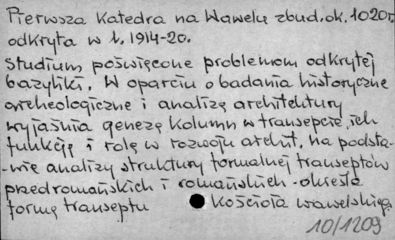 Pierwsza Katedra na Wawelu zbud.ok. 1020r.
odkryta w l. 1914-20.
Studium poświęcone problemom odkrytej
bazyliki. W oparciu o badania historyczne
archeologiczne i analizę architektury
wyjaśnia genezę kolumn w transepcie, ich
funkcję i rolę w rozwoju archit. na podsta-
-wie analizy struktury formalnej transeptów
przedromańskich i romańskich - określa
formę transeptu kościoła wawelskiego
10/1209